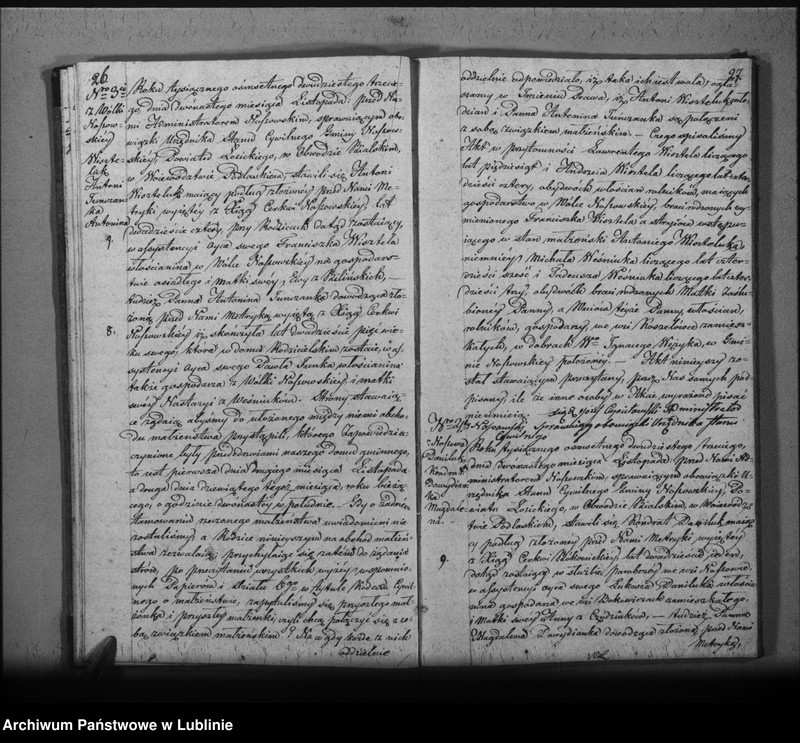 26.
Nro 3ci
z Wolki
Nosow-
skiey
Wiszte-
luk
Antoni
Junczan-
ka
Antonina
9.
8.
Roku tysiącznego ośmsetnego dwudziestego trzecie-
go, dnia dwunastego miesiąca Listopada. przed Na-
mi Administratorem Nosowskim, sprawuiącym obo-
wiązki Urzędnika Stanu Cywilnego Gminy Nosow-
skiey, Powiatu Łosickiego, w Obwodzie Bialskim,
w Woiewództwie Podlaskiem, stawili się, Antoni
Wiszteluk maiący podług złożoney przed Nami Me-
tryki wyiętey z Xiąg Cerkwi Nosowskiey, lat
dwadzieście cztery, przy Rodzicach dotąd zostaiący,
w assystencyi oyca swego Franciszka Wisztela
włościanina w Wólce Nosowskiey na gospodars-
twie osiadłego i matki swey, Ewy z Bilińskich, —
tudzież Panna Antonina Junczanka dowodząca zło-
żoną przed Nami Metryką wyiętą z Xiąg Cerkwi
Nosowskiey iż skończyła lat dwadzieście pięć wie-
ku swego, która w domu Rodzicielskim zostaie, w as-
systencyi oyca swego Pawła Junka włościanina
także gospodarza z Wolki Nosowskiey i matki
swey Nastazyi z Weśniuków. Strony stawaią-
ce żądaią abyśmy do ułożonego między niemi obcho-
du małżeństwa przystąpili, którego Zapowiedzi u-
czynione były przededrzwiami naszego domu gminnego,
to iest pierwsza dnia drugiego miesiąca Listopada
a druga dnia dziewiątego tegoż miesiąca, roku bieżą-
cego, o godzinie dwunastey w południe. Gdy o żadnem
tamowaniu rzeczonego małżeństwa uwiadomieni nie
zostaliśmy a Rodzice ninieyszym na obchod małżeń-
stwa zezwalaią; przychylaiąc się zatem do żądania
stron, po przeczytaniu wszystkich wyżey wspomnio-
nych Papierów i działu 6go w tytule Kodexu Cywil-
nego o małżeństwie, zapytaliśmy się przyszłego mał-
żonka i przyszłey małżonki; czyli chcą połączyć się z so-
bą związkiem małżeńskim? Na co gdy każde z nich
oddzielnie
27.
oddzielnie odpowiedziało, iż taka ich iest wola; ogła-
szamy w Imieniu Prawa, iż Antoni Wiszteluk
i Panna Antonina Junczanka są połączeni
z sobą związkiem małżeńskim. — Czego spisaliśmy
Akt w przytomności Ławrentego Wisztela liczącego
lat pięćdziesiąt i Andrzeia Wisztela liczącego lat czter-
dzieści cztery, obydwóch włościan rolników, maiących
gospodarstwo w Wolce Nosowskiey, braci rodzonych wy-
mienionego Franciszka Wisztela a stryiów wstępu-
iącego w stan małżeński Antoniego Wiszteluka,
niemniey Michała Weśniuka liczącego lat czter-
dzieści sześć i Tadeusza Weśniuka liczącego lat czter-
dzieści trzy, obydwóch braci rodzonych Matki Zaślu-
bioney Panny, a Wuiow teyże Panny, włościan,
rolników, gospodarzy we wsi Koszelówce zamiesz-
kałych, w Dobrach
w Gmi-
nie Nosowskiey położoney. — Akt ninieyszy zo-
stał stawaiącym przeczytany, przez Nas samych pod-
pisany, ile że inne osoby w Akcie wyrażone pisać
nieumieią.
Administrator
Nosowski, sprawuiący obowiązki Urzędnika Stanu
Cywilnego
z Nosowa
Daniluk
Kondrat
Dawydian-
ka
Magdale-
na.
9.
Roku tysiącznego ośmsetnego dwudziestego trzeciego,
dnia dwunastego miesiąca Listopada. przed Nami Ad-
ministratorem Nosowskim, sprawuiącym obowiązki U-
rzędnika Stanu Cywilnego Gminy Nosowskiey, Po-
wiatu Łosickiego, w Obwodzie Bialskim, w Woiewódz-
twie Podlaskiem, stawili się, Kondrat Daniluk maią-
cy podług złożoney przed Nami Metryki, wyiętey
z Xiąg Cerkwi Bukowickiey, lat dwadzieścia ieden,
dotąd zostaiący w służbie parobczey we wsi Nosowie,
w assystencyi oyca swego Łukasza Daniluka włościa-
nina gospodarza we wsi Bukowiczach zamieszkałego,
i Matki swey Anny z
— tudzież Panna
Magdalena Dawydianka dowodząca złożoną przed Nami
Metryką,
Archiwum Państwowe w Lublinie